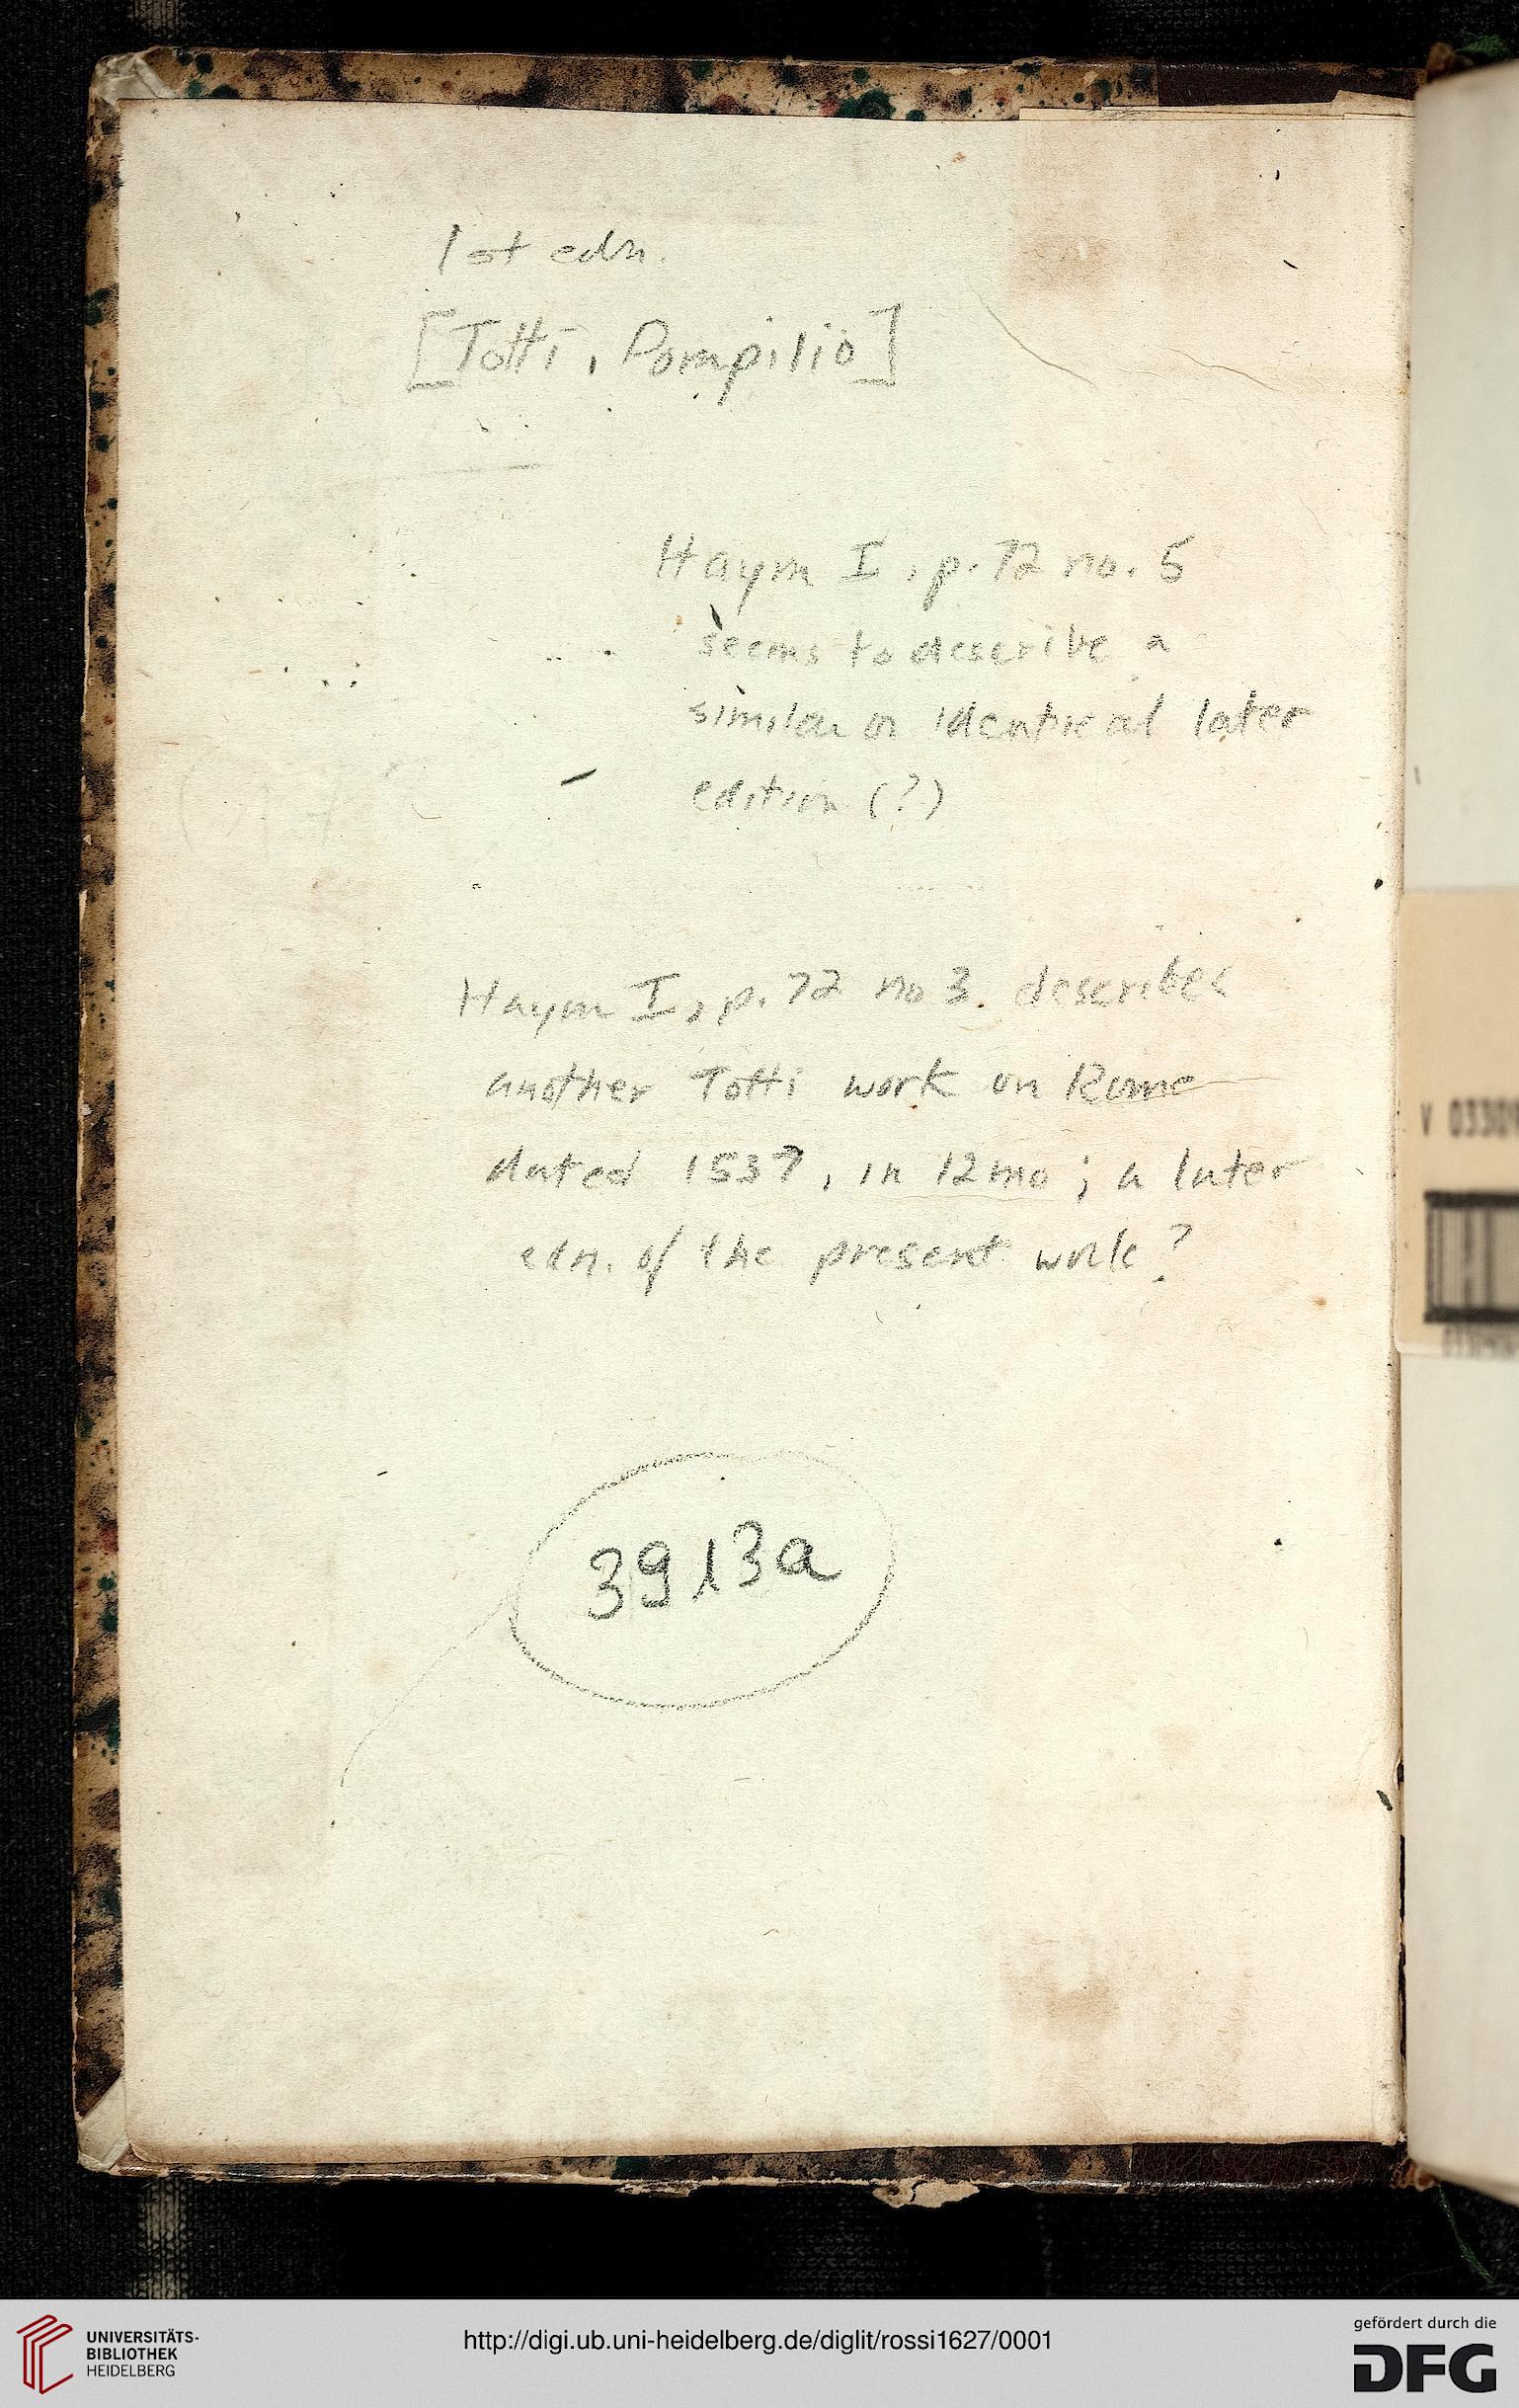 1st edn.
[Totti, Pompilio]
Haym I, p. 72 no. 5
seems to describe a
similar or identical later
edition (?)
Haym I, p. 72 no 3. describes
another Totti work on Rome
dated 1537, in 12mo; a later
edn. of the present work?
3913a
V 0330
UNIVERSITÄTS-
BIBLIOTHEK
HEIDELBERG
http://digi.ub.uni-heidelberg.de/diglit/rossi1627/0001
gefördert durch die
DFG